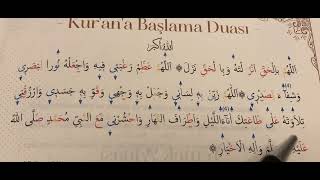 Kur'an'a Başlama Duası
اللهُ اَكْبَرُ
اَللّٰهُمَّ بِالْحَقِّ اَنْزَلْتَهُ وَبِالْحَقِّ نَزَلَ ۞ اَللّٰهُمَّ عَظِّمْ رَغْبَتِى فِيهِ وَاجْعَلْهُ نُورًا لِبَصَرِى
وَشِفَاءً لِصَدْرِى ۞ اَللّٰهُمَّ زَيِّنْ بِهِ لِسَانِى وَجَمِّلْ بِهِ وَجْهِى وَقَوِّ بِهِ جَسَدِى وَارْزُقْنِى
تِلَاوَتَهُ عَلٰى طَاعَتِكَ اٰنَاءَ اللَّيْلِ وَاَطْرَافَ النَّهَارِ وَاحْشُرْنِى مَعَ النَّبِىِّ مُحَمَّدٍ صَلَّى اللّٰهُ
عَلَيْهِ وَاٰلِهِ الْاَخْيَارِ ۞